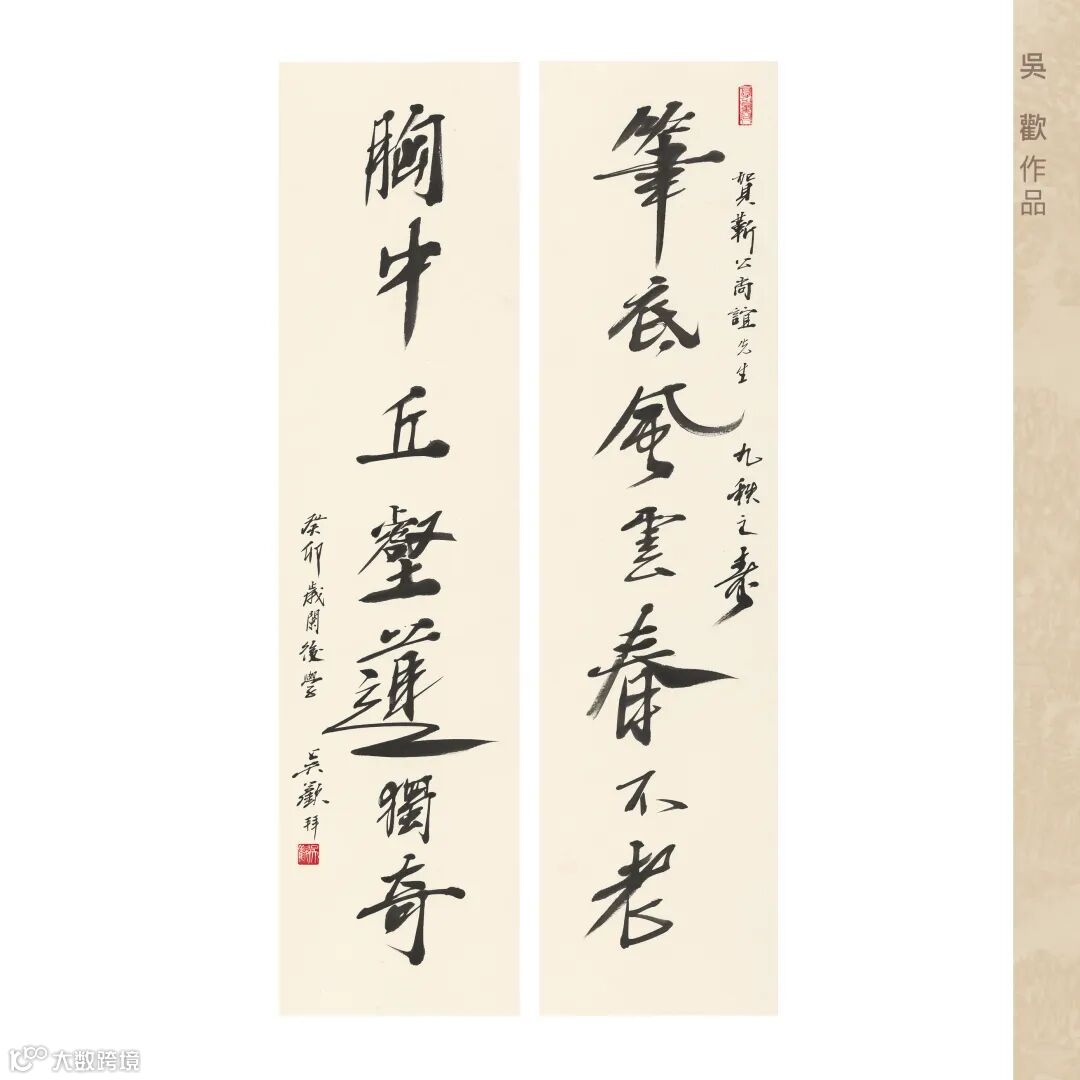 吳歡作品
賀靳公尚誼先生 九秩之壽
筆底風雲春不老
胸中丘壑道獨奇
癸卯歲闌後學 吳歡拜
大数跨境